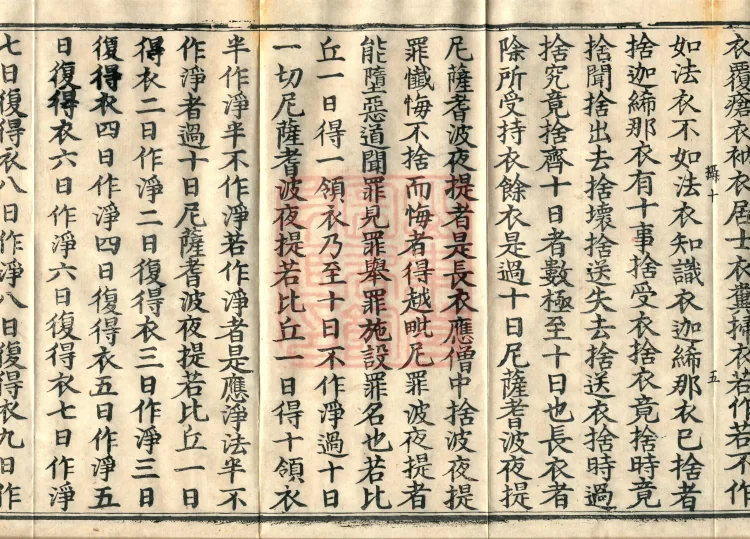 衣覆瘡衣袖衣居士衣糞掃衣若作若不作
如法衣不如法衣知識衣迦絺那衣已捨者
捨迦絺那衣有十事捨受衣捨衣竟捨時竟
捨聞捨出去捨壞捨送失去捨送衣捨時過
捨究竟捨齊十日者數極至十日也長衣者
除所受持衣餘衣是過十日尼薩耆波夜提
尼薩耆波夜提者是長衣應僧中捨波夜提
罪懺悔不捨而悔者得越毗尼罪波夜提者
能墮惡道聞罪見罪舉罪施設罪名也若比
丘一日得一領衣乃至十日不作淨過十日
一切尼薩耆波夜提若比丘一日得十領衣
半作淨半不作淨若作淨者是應淨法半不
作淨者過十日尼薩耆波夜提若比丘一日
得衣二日作淨二日復得衣三日作淨三日
復得衣四日作淨四日復得衣五日作淨五
日復得衣六日作淨六日復得衣七日作淨
七日復得衣八日作淨八日復得衣九日作